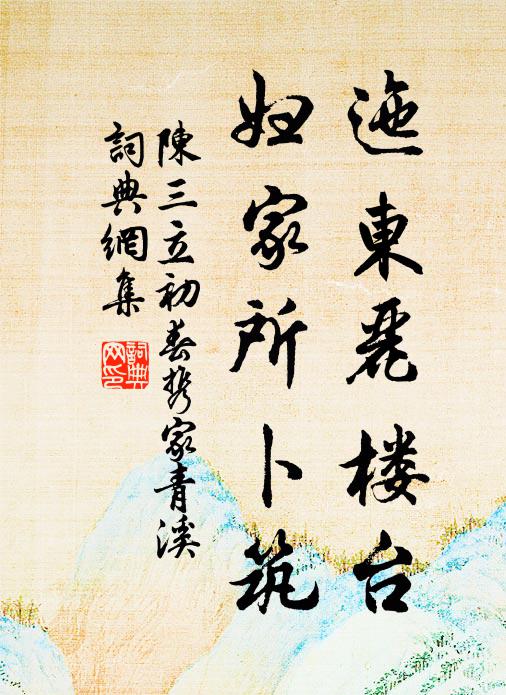 迤東麗楼台
妇家所卜筑
陳三立初春携家青溪
詞典網集
詞典网印